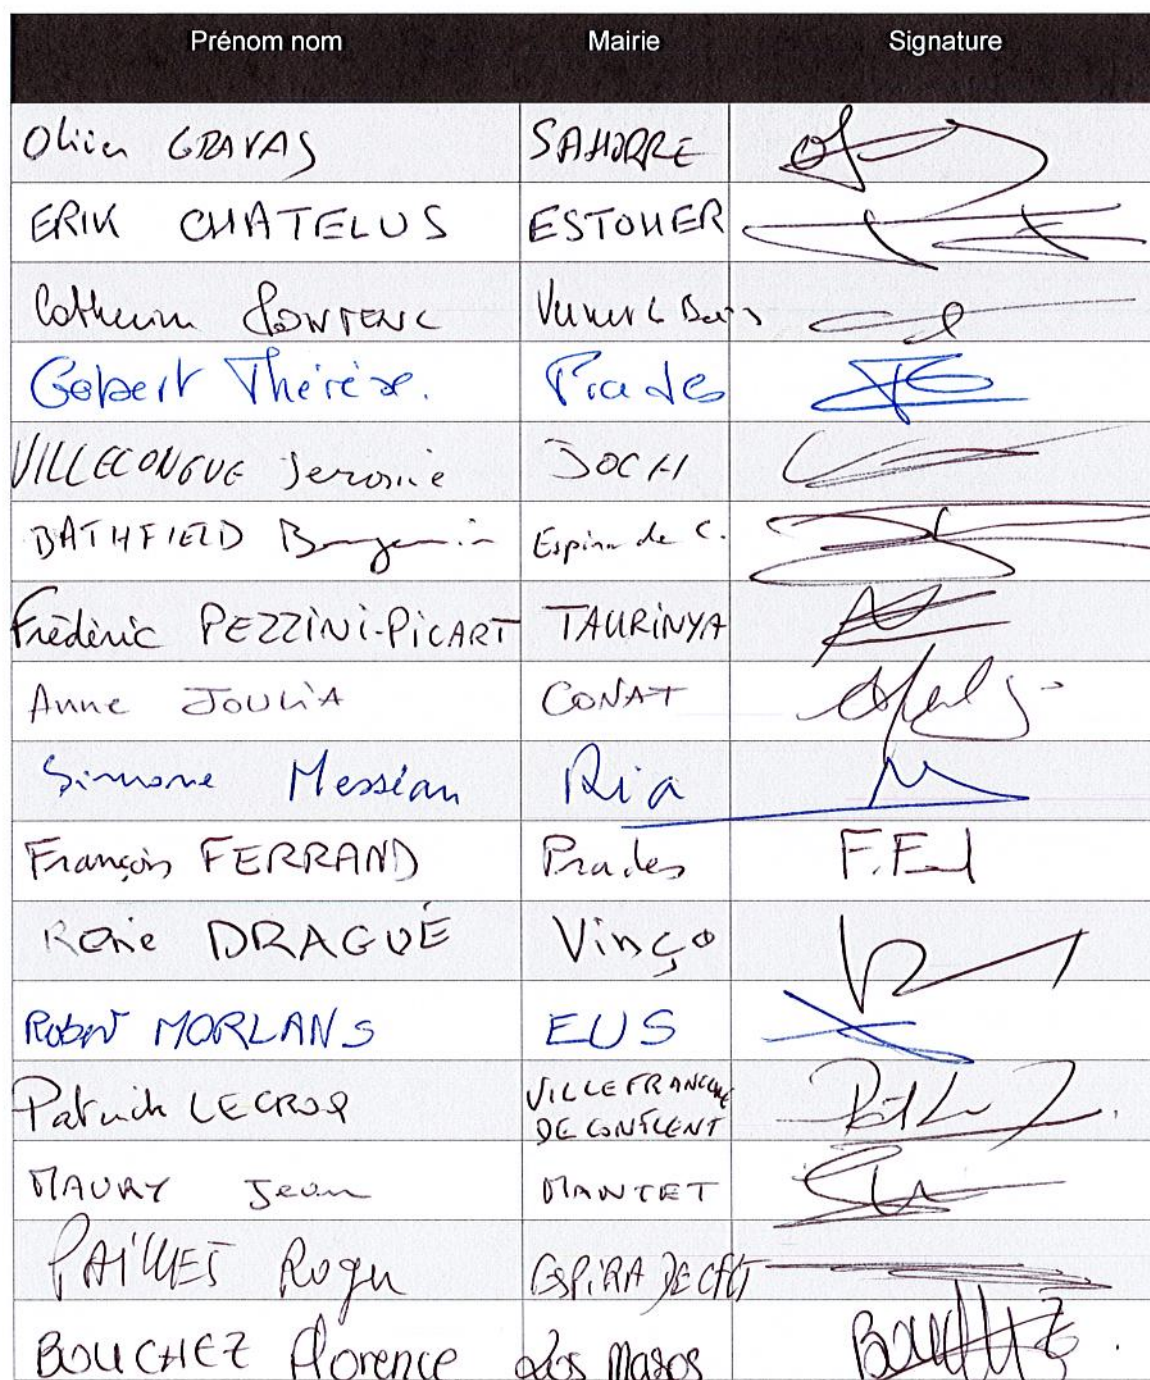 Prénom nom Mairie Signature
Olivier GRAVAS SAHORRE
ERIK CHATELUS ESTOHER
Catherine Vernet L Bains
Gobert Thérèse. Prades
VILLELONGUE Jerome JOCH
BATHFIELD Benjamin Espira de C.
Frédéric PEZZINI-PICART TAURINYA
Anne JOULIA CONAT
Simone Messian Ria
François FERRAND Prades F.Fed
René DRAGUÉ Vinço
Robert MORLANS EUS
Patrick LECROQ VILLEFRANCHE
DE CONFLENT
MAURY Jean MANTET
PAILLES Roger ESPIRA DE CFLT
BOUCHEZ Florence Los Masos BOUCHEZ